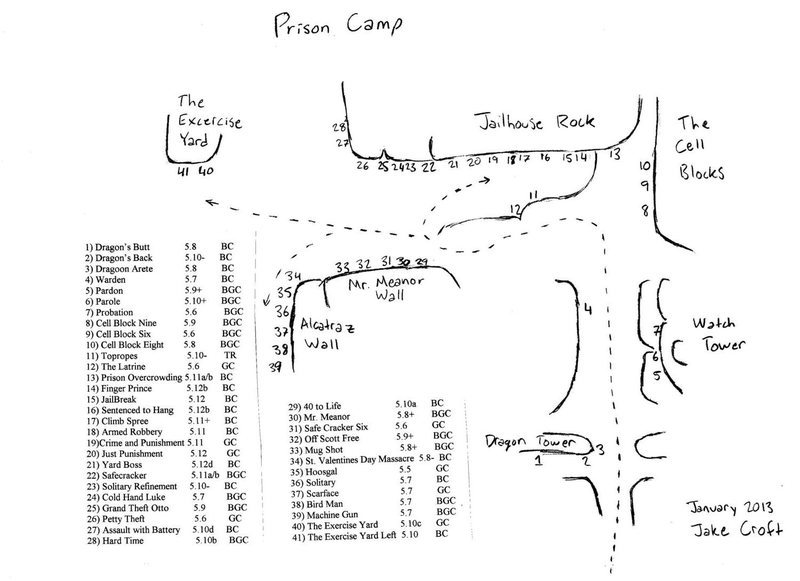 Prison Camp
The
Excercise
Yard
41 40
28
27
26 25 24 23 22 21 20 19 18 17 16 15 14 13
Jailhouse Rock
The
Cell
Blocks
10
9
8
11
12
34
35
36
37
38
39
33 32 31 30 29
Mr. Meanor
Wall
Alcatraz
Wall
4
7
6
5
Watch
Tower
Dragon Tower
1 2 3
1) Dragon's Butt 5.8 BC
2) Dragon's Back 5.10- BC
3) Dragoon Arete 5.8 BC
4) Warden 5.7 BC
5) Pardon 5.9+ BGC
6) Parole 5.10+ BGC
7) Probation 5.6 BGC
8) Cell Block Nine 5.9 BGC
9) Cell Block Six 5.6 BGC
10) Cell Block Eight 5.8 BGC
11) Topropes 5.10- TR
12) The Latrine 5.6 GC
13) Prison Overcrowding 5.11a/b BC
14) Finger Prince 5.12b BC
15) JailBreak 5.12 BC
16) Sentenced to Hang 5.12b BC
17) Climb Spree 5.11+ BC
18) Armed Robbery 5.11 BC
19)Crime and Punishment 5.11 GC
20) Just Punishment 5.12 GC
21) Yard Boss 5.12d BC
22) Safecracker 5.11a/b BGC
23) Solitary Refinement 5.10- BC
24) Cold Hand Luke 5.7 BGC
25) Grand Theft Otto 5.9 BGC
26) Petty Theft 5.6 GC
27) Assault with Battery 5.10d BC
28) Hard Time 5.10b BGC
29) 40 to Life 5.10a BC
30) Mr. Meanor 5.8+ BGC
31) Safe Cracker Six 5.6 GC
32) Off Scott Free 5.9+ BGC
33) Mug Shot 5.8+ BGC
34) St. Valentines Day Massacre 5.8- BC
35) Hoosgal 5.5 GC
36) Solitary 5.7 BC
37) Scarface 5.7 GC
38) Bird Man 5.7 BGC
39) Machine Gun 5.7 BGC
40) The Exercise Yard 5.10c GC
41) The Exercise Yard Left 5.10 BC
January 2013
Jake Croft